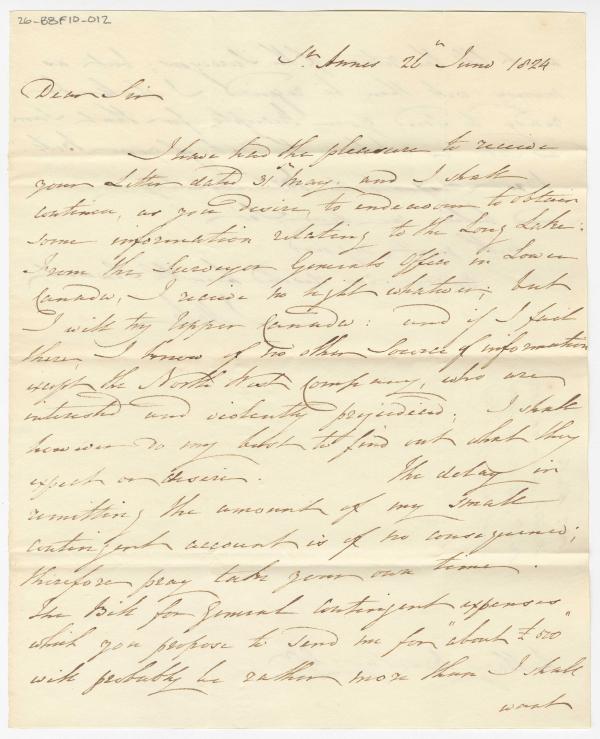 26-BBF10-012
St. Annes 26th June 1824
Dear Sir
I have had the pleasure to receive
your Letter dated 31st May. and I shall
continue, as you desire, to endeavour to obtain
some information relating to the Long Lake:
From the Surveyor Generals Office in Lower
Canada, I receive no light whatever; but
I will try Upper Canada: and if I fail
there, I know of no other Source of information
except the North West Company, who are
interested and violently prejudiced; I shall
however do my best to find out what they
expect or desire. The delay in
remitting the amount of my small
contingent account is of no consequence;
therefore pray take your own time.
The Bill for General Contingent expenses
which you propose to send me for "about £500"
will probably be rather more than I shall
want